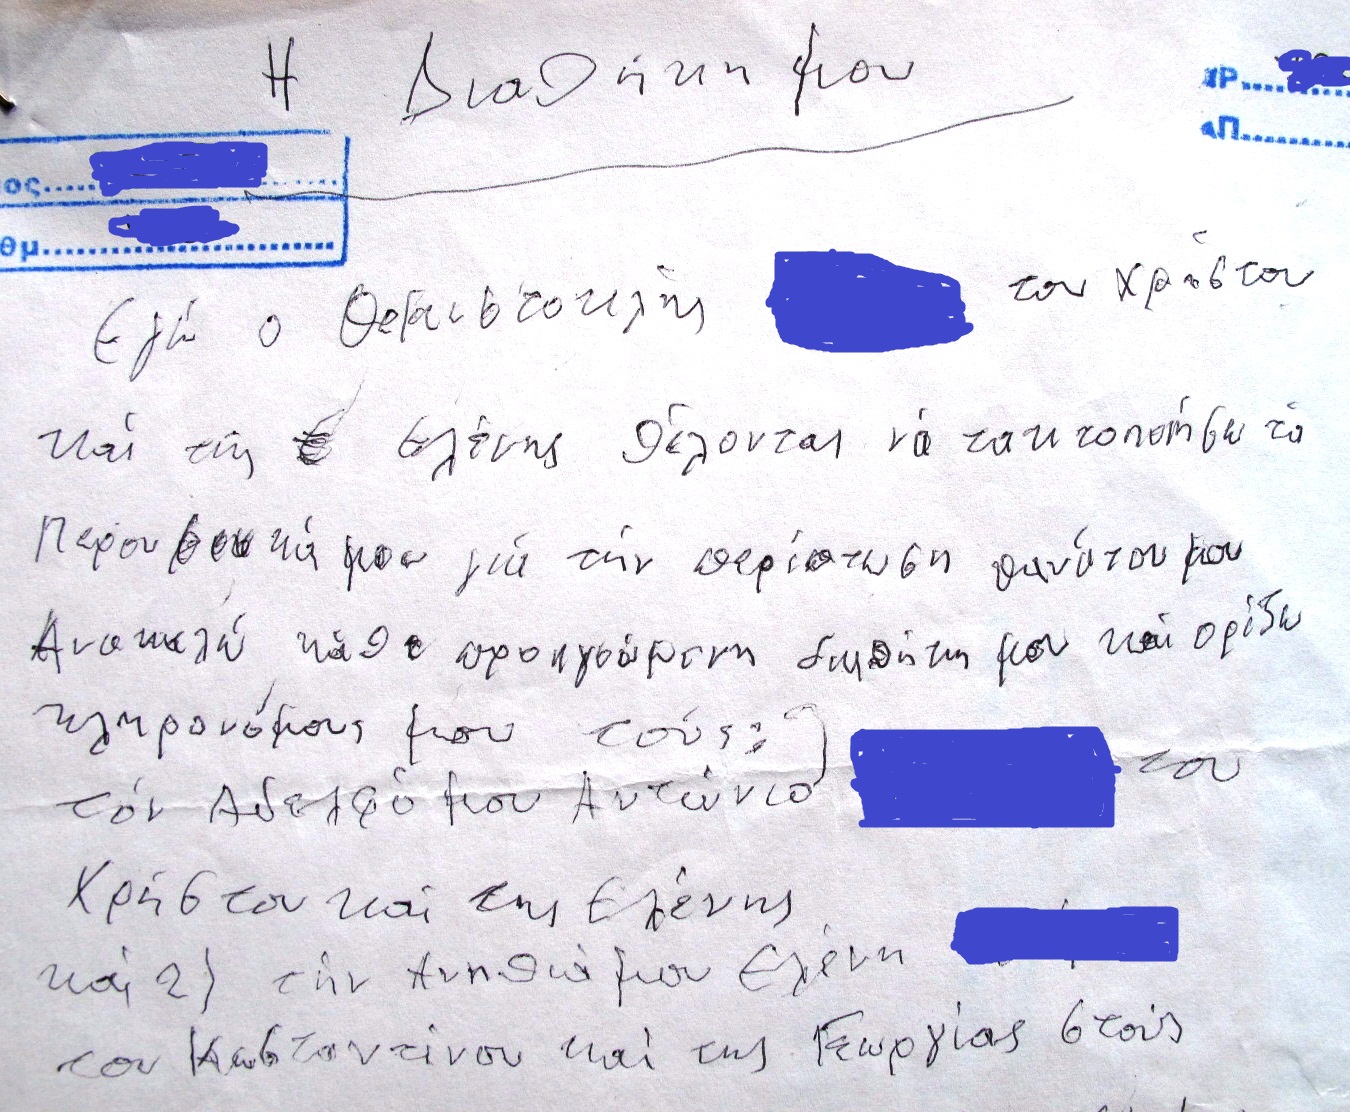 Η Διαθήκη μου
ΑΡ.....
ΑΠ.....
ος.....
θμ.....
Εγώ ο Θεμιστοκλής του Χρήστου
και της Ελένης θέλονται νά τακτοποιήσω τά
Περουσιακά μου γιά τήν περίπτωση θανάτου μου
Ανακαλώ κάθε προηγούμενη διαθήκη μου καί ορίζω
κληρονόμους μου τούς: 1)
τόν Αδελφό μου Αντώνιο του
Χρήστου καί της Ελένης
καί 2) τήν Ανηθιά μου Ελένη
του Κωσταντίνου καί της Γεωργίας στούς